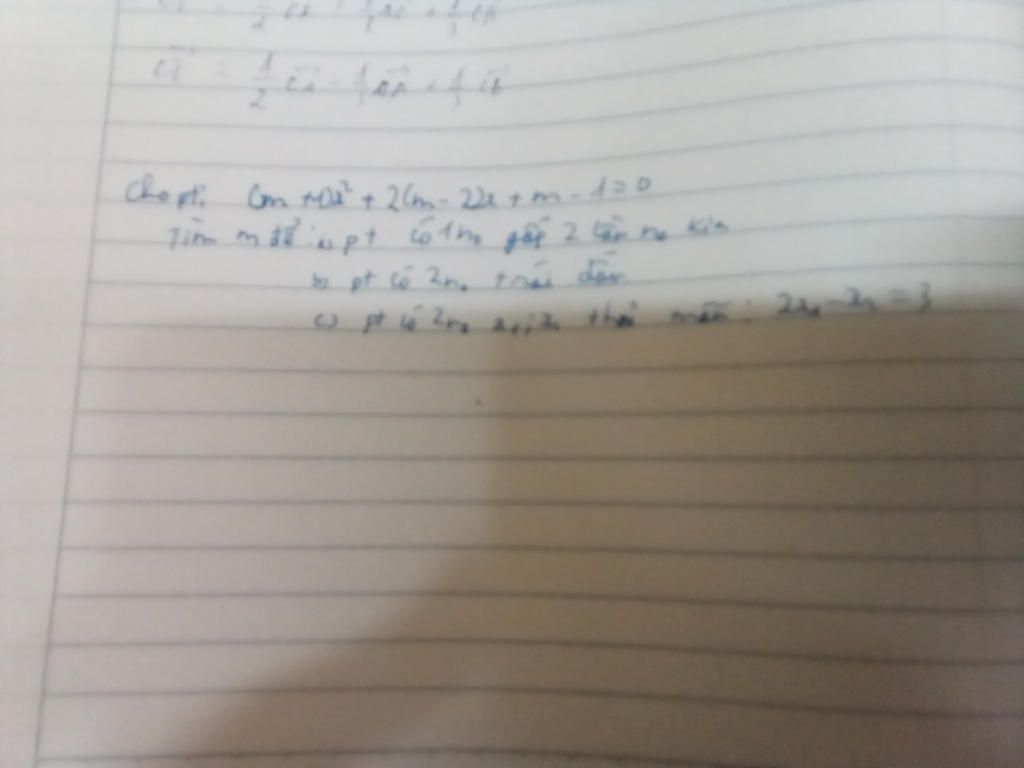 = 1/2 CA + 1/3 AC + 1/3 CB
CI = 1/2 CA - 1/3 CA + 1/3 CB
Cho pt: (m + 1)x² + 2(m - 2)x + m - 1 = 0
Tìm m để: a) pt có 1 no gấp 2 lần no kia
b) pt có 2 no trái dấu
c) pt có 2 no x₁; x₂ thoả mãn: 2x₁ - x₂ = 3